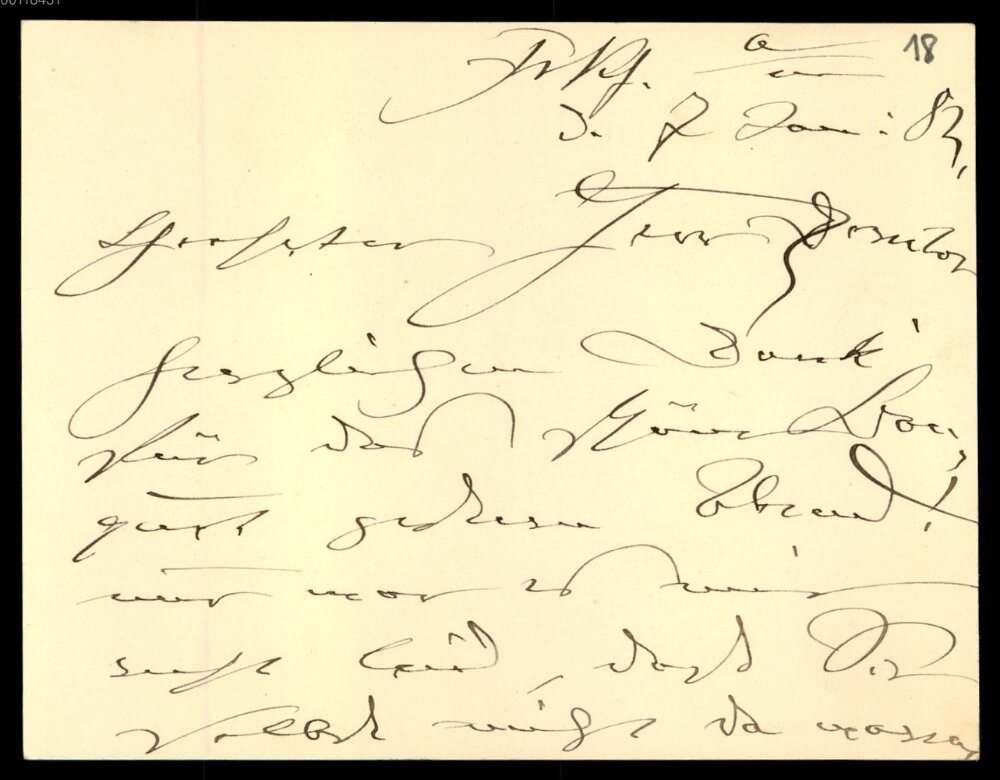 00118451
18
Frkf. a/m
d. 7 Jan: 87,
Geehrter Herr Doctor
herzlichen Dank
für das schöne Bou,
quet gestern Abend!
nur war es mir
recht leid, dass Sie
selbst nicht da waren,